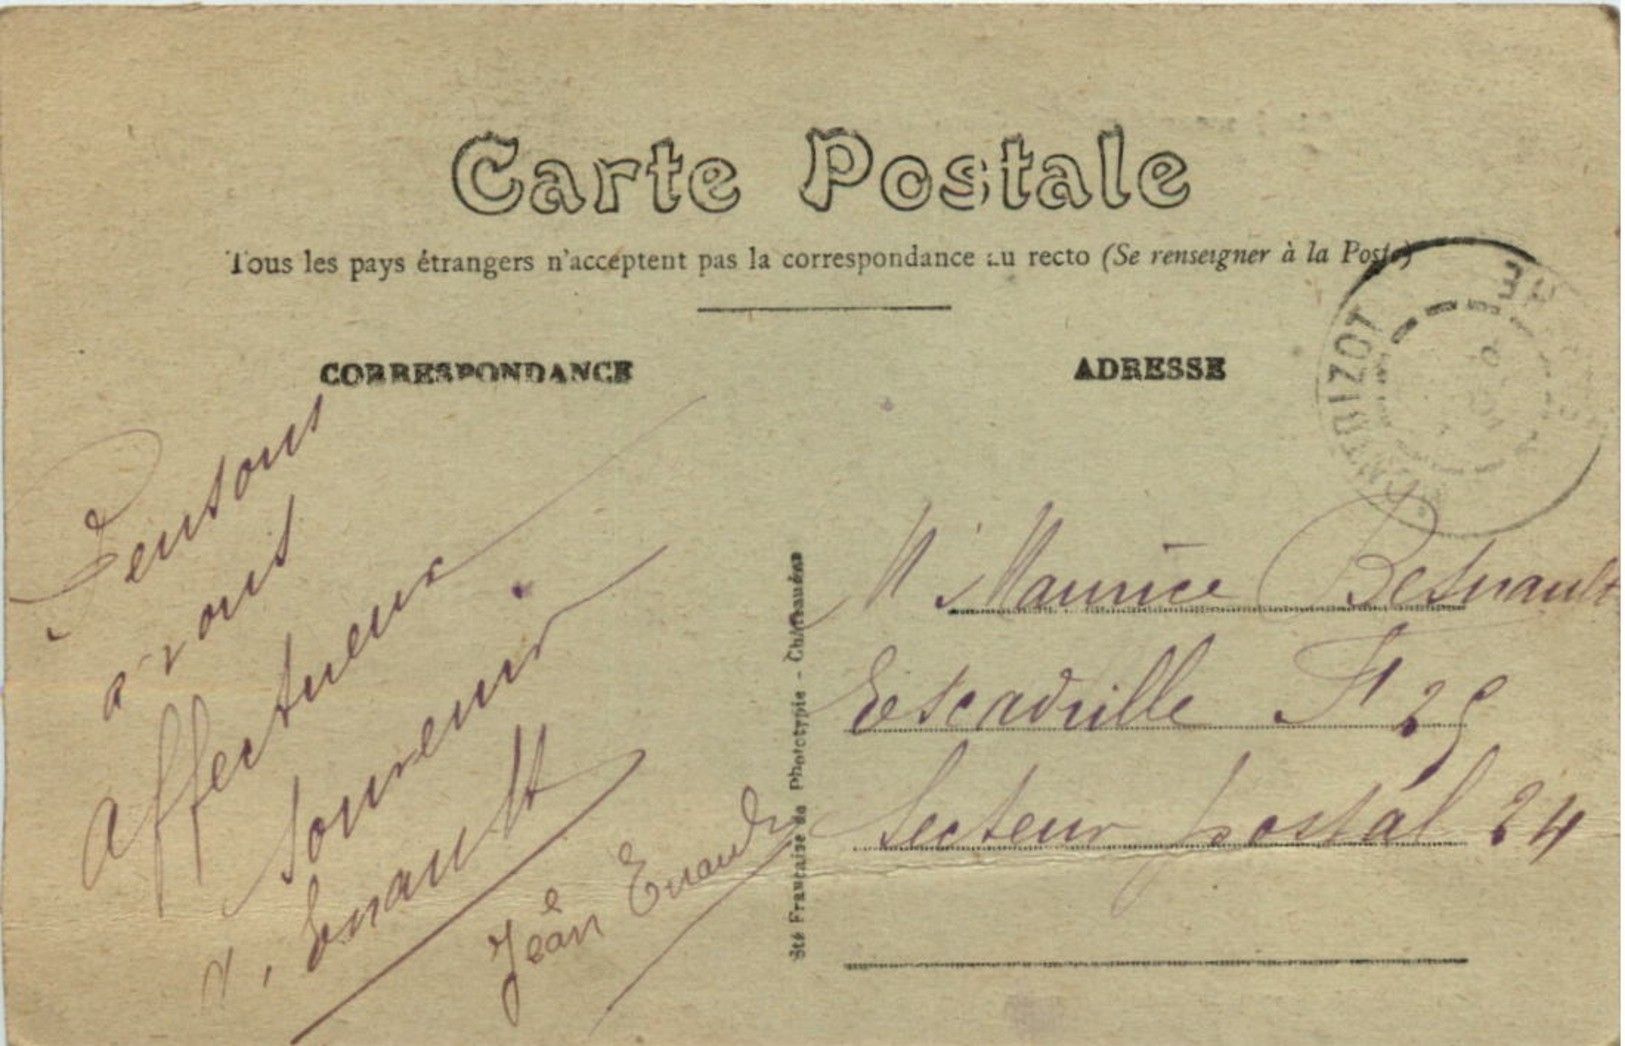 Carte Postale
Tous les pays étrangers n'acceptent pas la correspondance au recto (Se renseigner à la Poste)
CORRESPONDANCE
Pensons
a vous
affectueux
souvenir
Enault
Jean
ADRESSE
MONTBIZOT
M Maurice Besnault
Escadrille F 25
Secteur postal 24
Sté Française de Phototypie - Châteauneuf